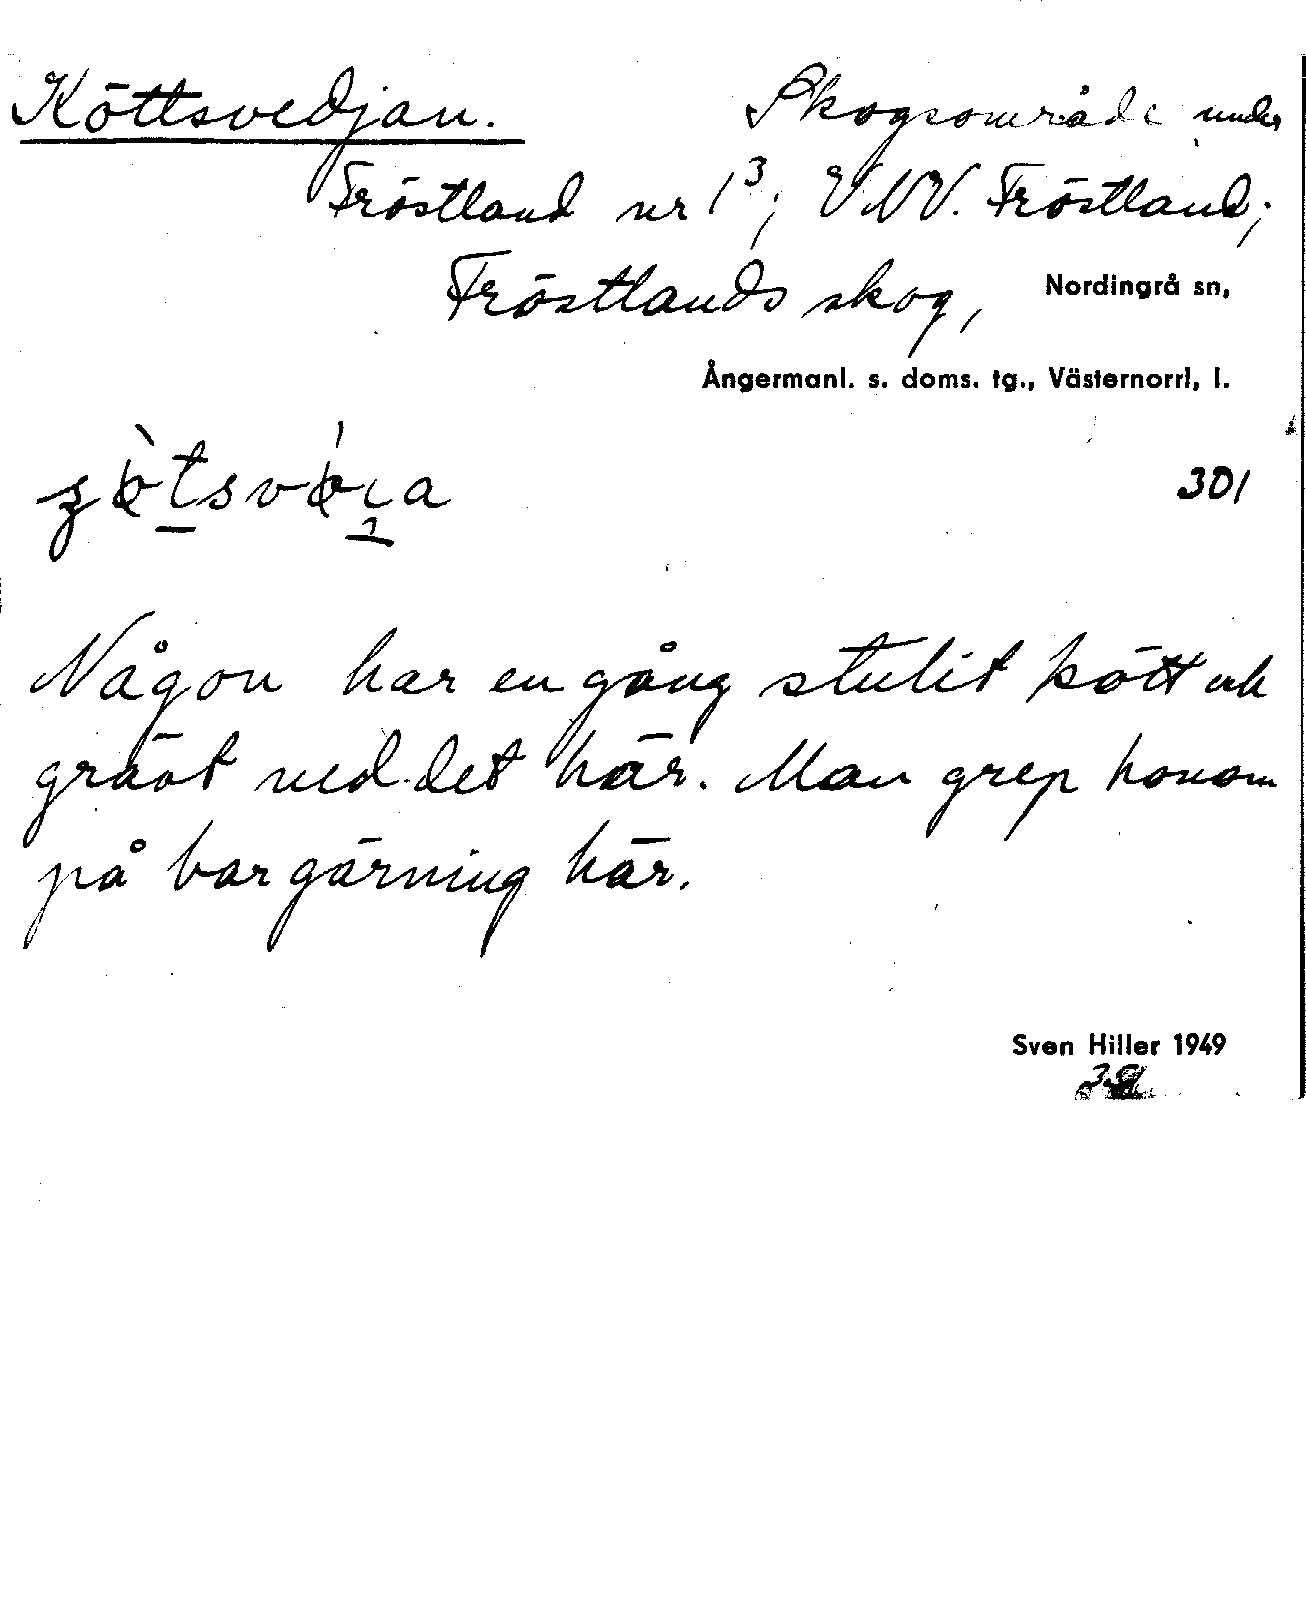 Köttsvedjan. Skogsområde under
Fröstland nr 1³; VNV. Fröstland;
Fröstlands skog, Nordingrå sn,
Ångermanl. s. doms. tg., Västernorrl, l.
301
Någon har en gång stulit kött och
grävt ned det här. Man grep honom
på bar gärning här.
Sven Hiller 1949